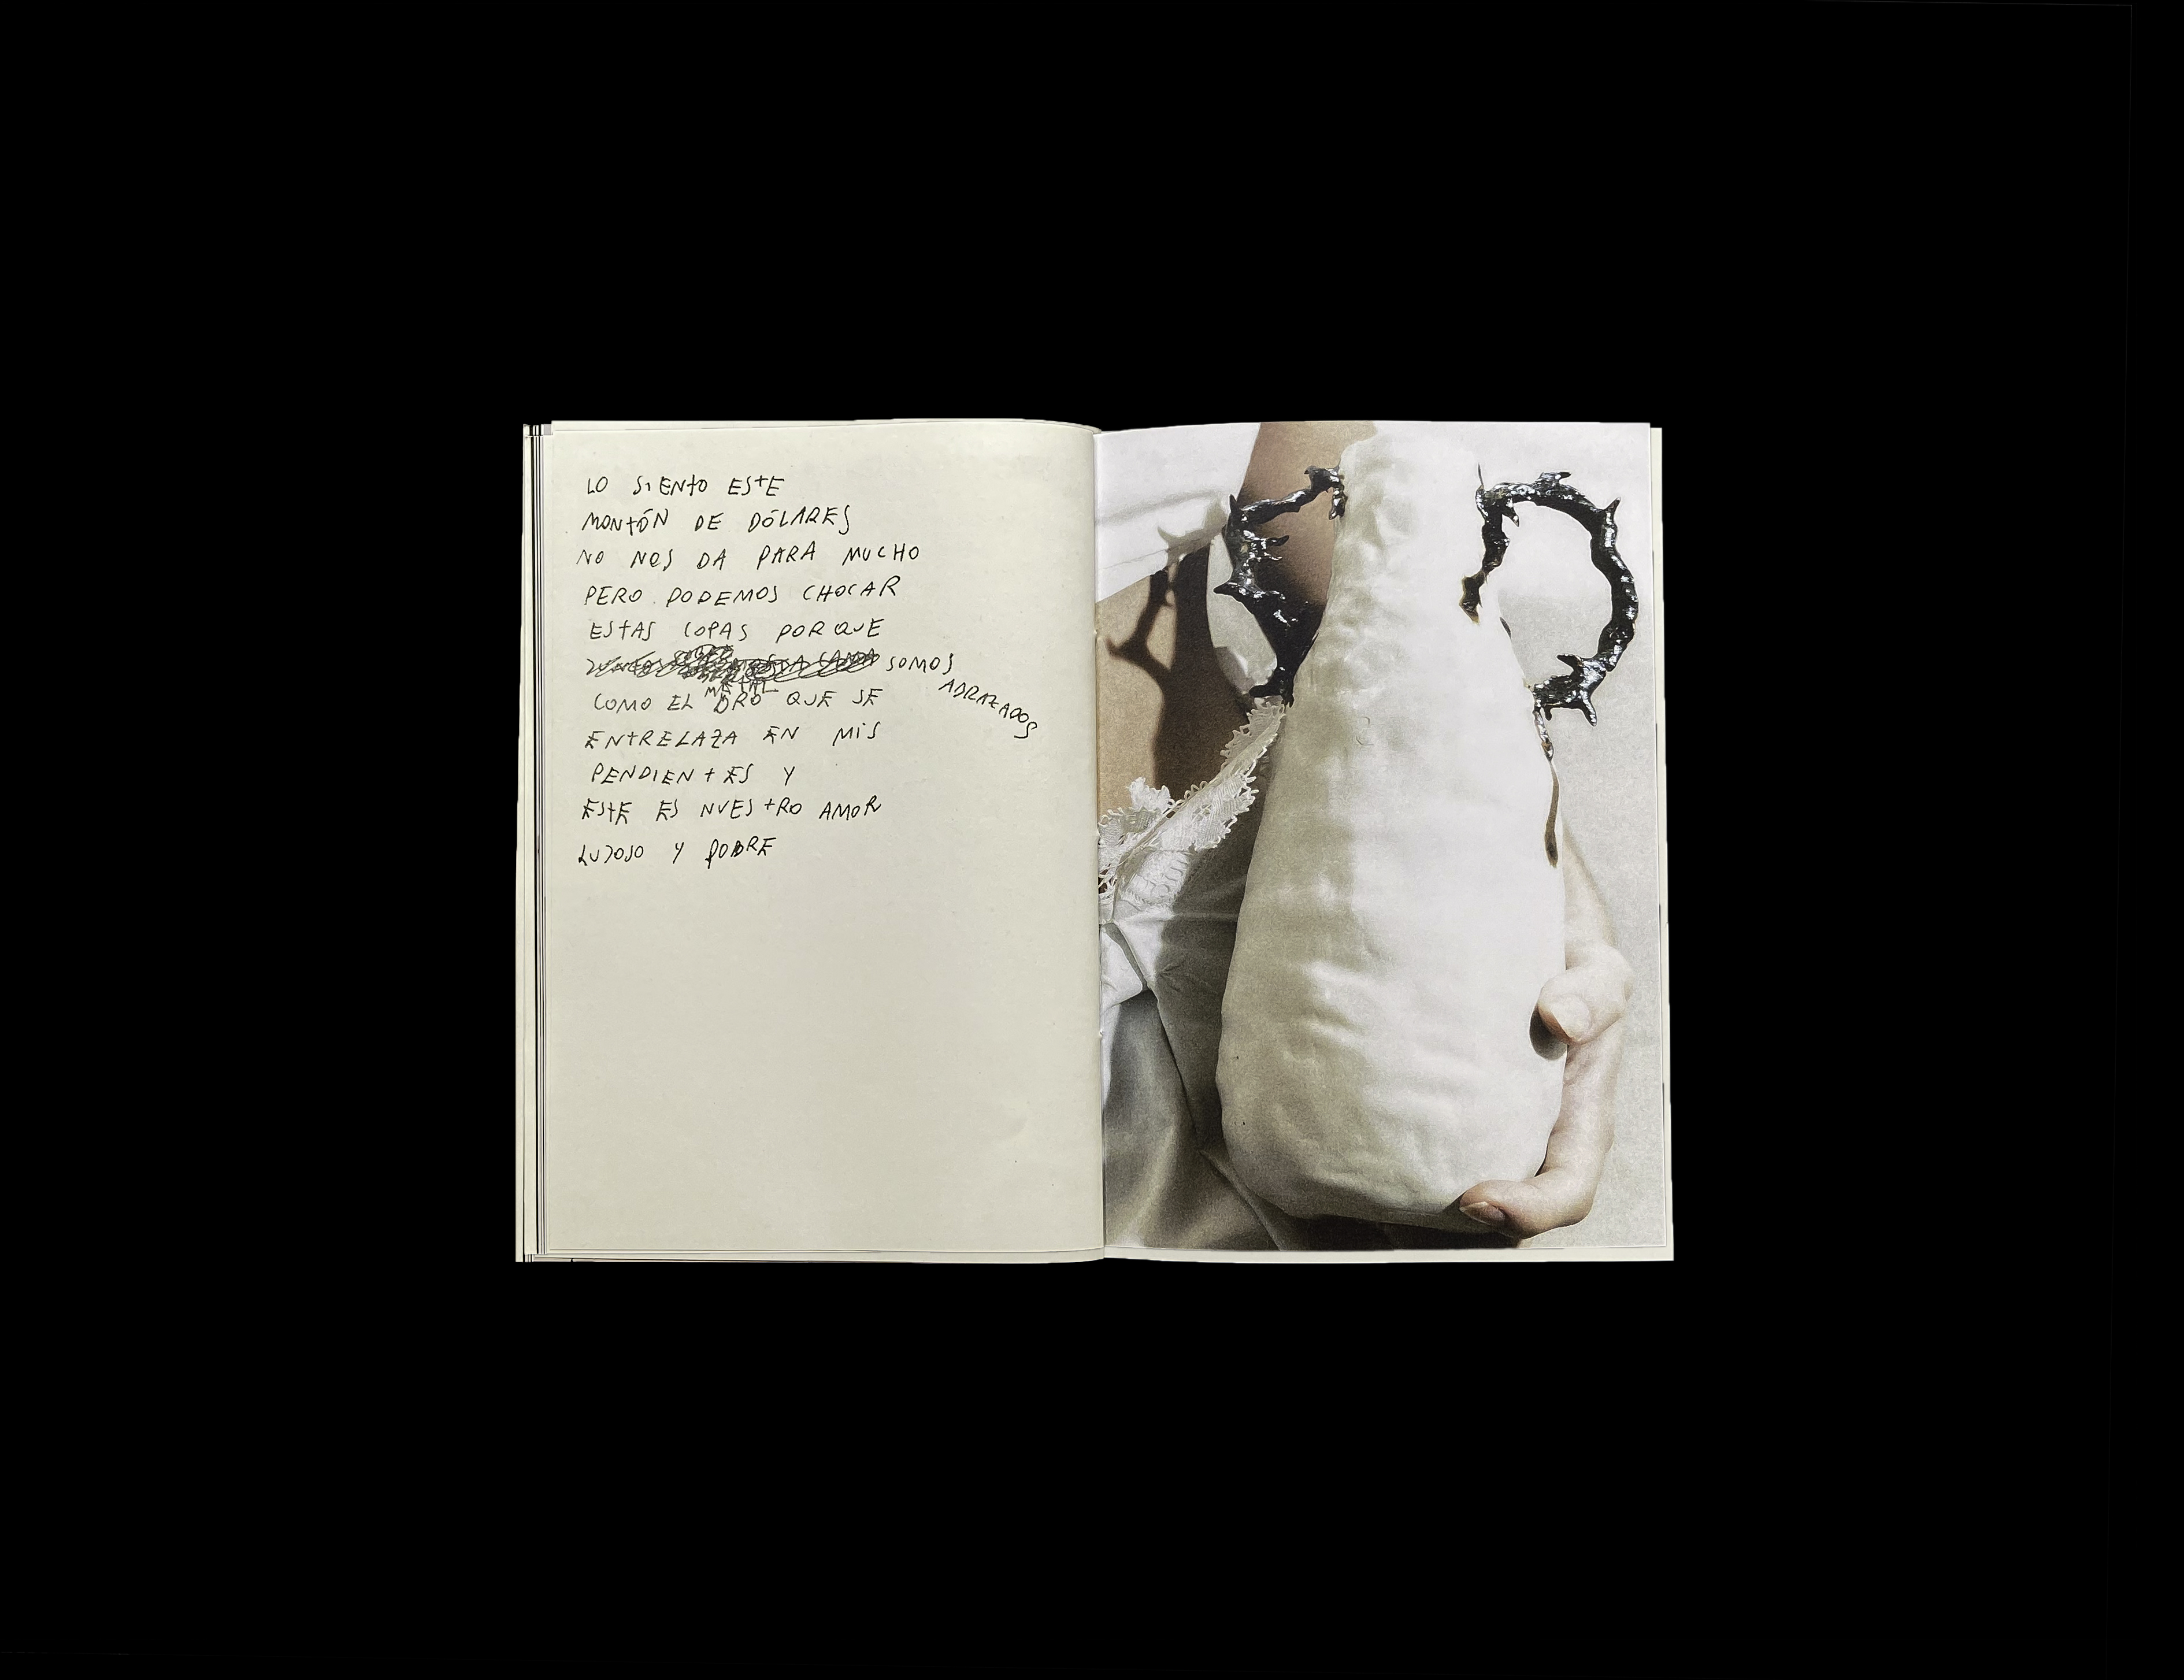 LO SIENTO ESTE
MONTÓN DE DÓLARES
NO NOS DA PARA MUCHO
PERO PODEMOS CHOCAR
ESTAS COPAS PORQUE
SOMOS ABRAZADOS
METAL
COMO EL ORO QUE SE
ENTRELAZA EN MIS
PENDIENTES Y
ESTE ES NUESTRO AMOR
LUJOSO Y POBRE